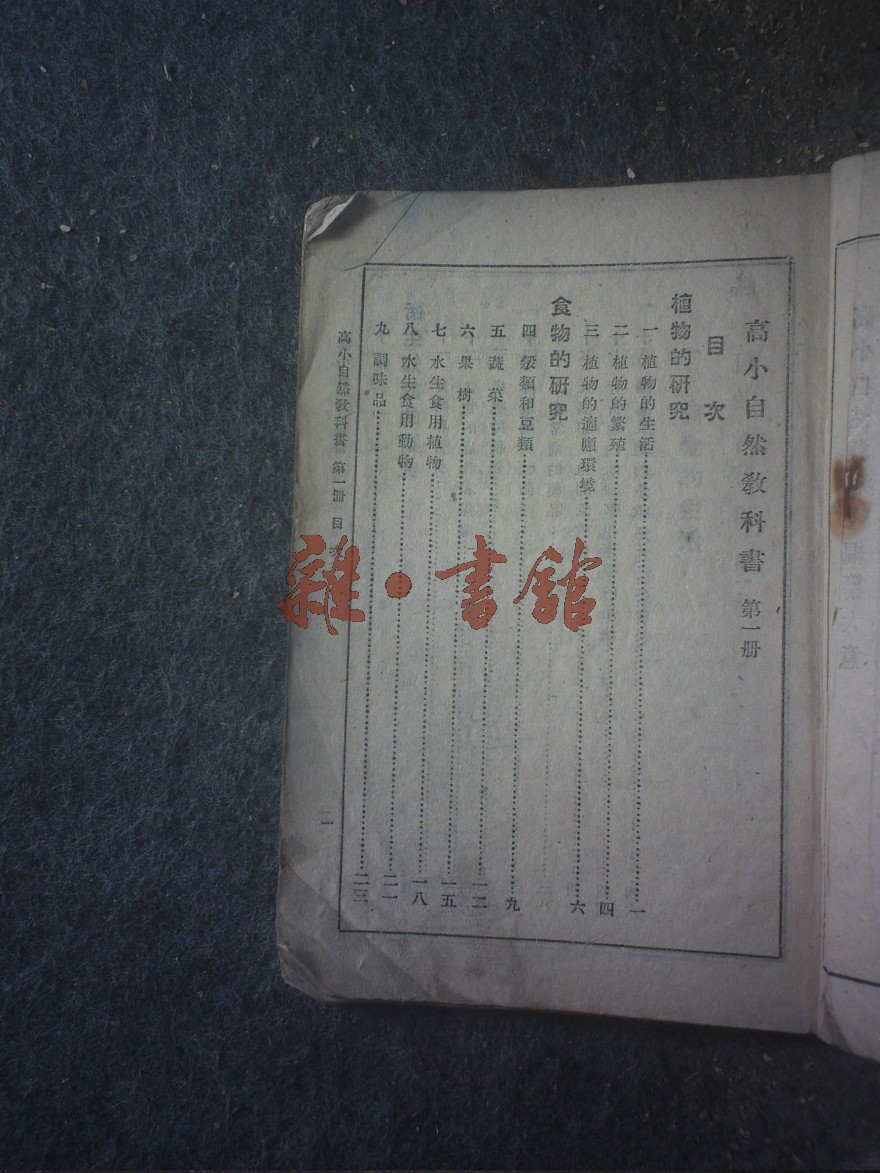 高小自然敎科書 第一册
目次
植物的研究
一 植物的生活 一
二 植物的繁殖 四
三 植物的適應環境 六
食物的研究
四 穀類和豆類 九
五 蔬菜 一二
六 果樹 一五
七 水生食用植物 一八
八 水生食用動物 二一
九 調味品 二三
高小自然敎科書 第一册 目次
雜·書舘